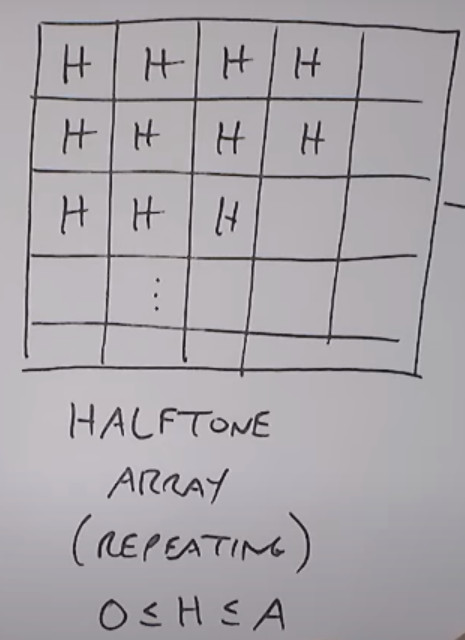 H H H H
H H H H
H H H
⋮
HALFTONE
ARRAY
(REPEATING)
0 ≤ H ≤ A